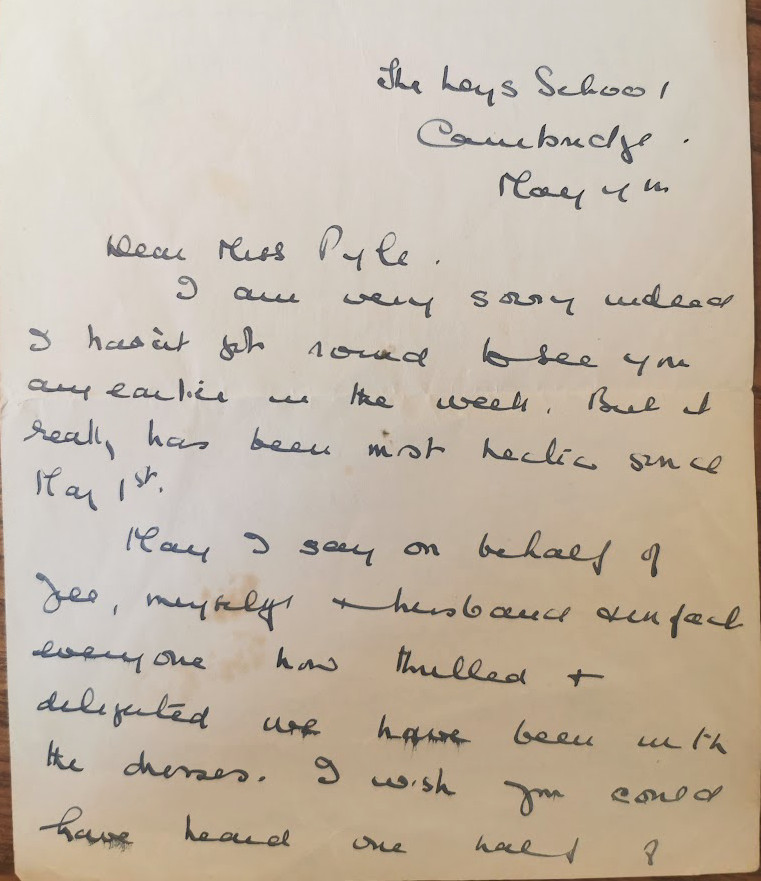 The Leys School
Cambridge.
May 4th
Dear Miss Pyle.
I am very sorry indeed
I havn't got round to see you
any earlier in the week. But it
really has been most hectic since
May 1st.
May I say on behalf of
myself + husband + in fact
everyone how thrilled +
delighted we have been with
the dresses. I wish you could
have heard one half of